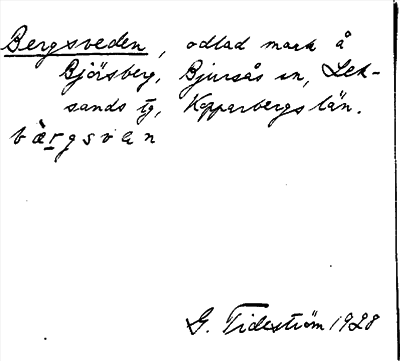 Bergsveden, odlad mark å
Björsberg, Bjursås sn, Lek-
sands tg, Kopparbergs län.
bærgsvẹn
G. Tideström 1928